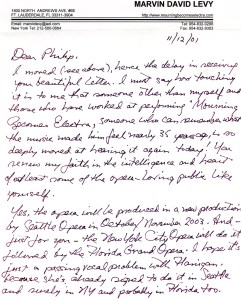 MARVIN DAVID LEVY
1900 NORTH ANDREWS AVE. #6E
FT. LAUDERDALE, FL 33311-3904
http://www.mourningbecomeselectra.com
New York Tel: 212-580-0664
11/12/01
Dear Philip,
I moved (see above), hence the delay in receiving
your beautiful letter. I must say how touching
it is to me that someone other than myself and
those who have worked at performing "Mourning
Becomes Electra," someone who can remember what
the music made him feel nearly 35 years ago, is so
deeply moved at hearing it again today. You
renew my faith in the intelligence and heart
of at least some of the opera-loving public like
yourself.
Yes, the opera will be produced in a new production
by Seattle Opera in October/November 2003. And -
just for you - the New York City Opera will do it
followed by the Florida Grand Opera! I hope it's
just a passing vocal problem with Flanigan.
because she's already signed to do it in Seattle
and surely in NY and probably in Florida too.